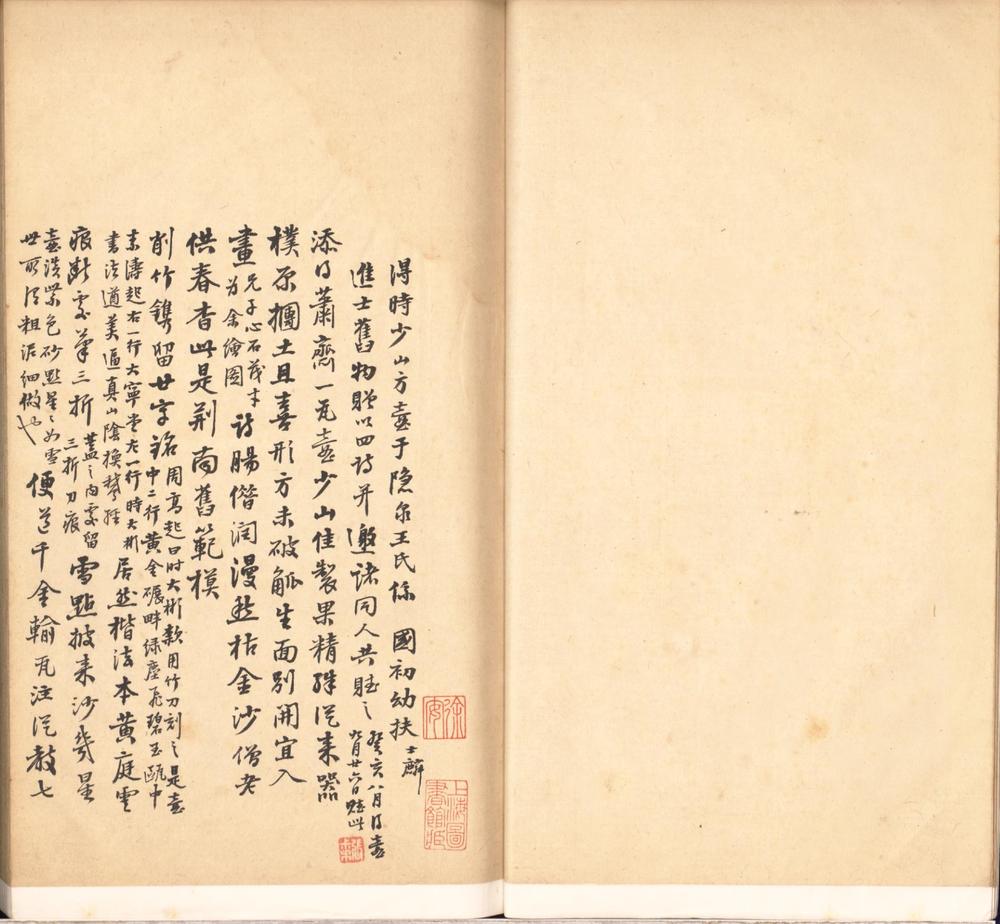 得時少山方壺于隱泉王氏係 國初幼扶士麟
進士舊物贈以四詩并邀諸同人共賦之癸亥八月得壺
九月廿六日賦此
添得蕭齋一瓦壺少山佳製果精殊從來器
樸原摶土且喜形方未破觚生面別開宜入
畫兄子心石茂才
為余繪圖
詩腸借潤漫愁枯金沙僧老
供春杳此是荊南舊範模
削竹鐫留廿字銘周高起曰時大彬款用竹刀刻之是壺
中二行黃金碾畔綠塵飛碧玉甌中
素濤起右一行大寧堂左一行時大彬
書法遒美逼真山陰換鵝經
居然楷法本黃庭雲
痕斷處筆三折蓋之內處留
三折刀痕
雪點披來沙幾星
壺淡紫色砂點星星如雪
世所謂粗泥細做也
便道千金輸瓦注從教七
上海圖書館藏